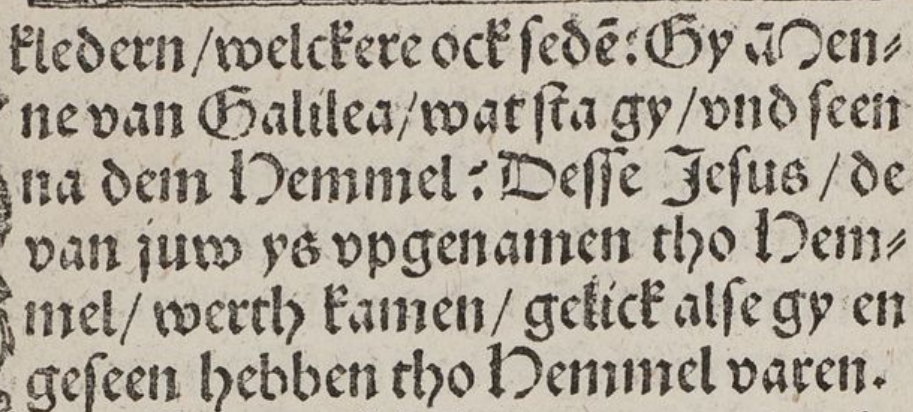 kledern /welckere ock ſedē: Gy Men⸗
ne van Galilea/wat ſta gy/vnd ſeen
na dem Hemmel: Deſſe Jeſus / de
van juw ys vpgenamen tho Hem⸗
mel/ werth kamen/ gelick alſe gy en
geſeen hebben tho Hemmel varen.